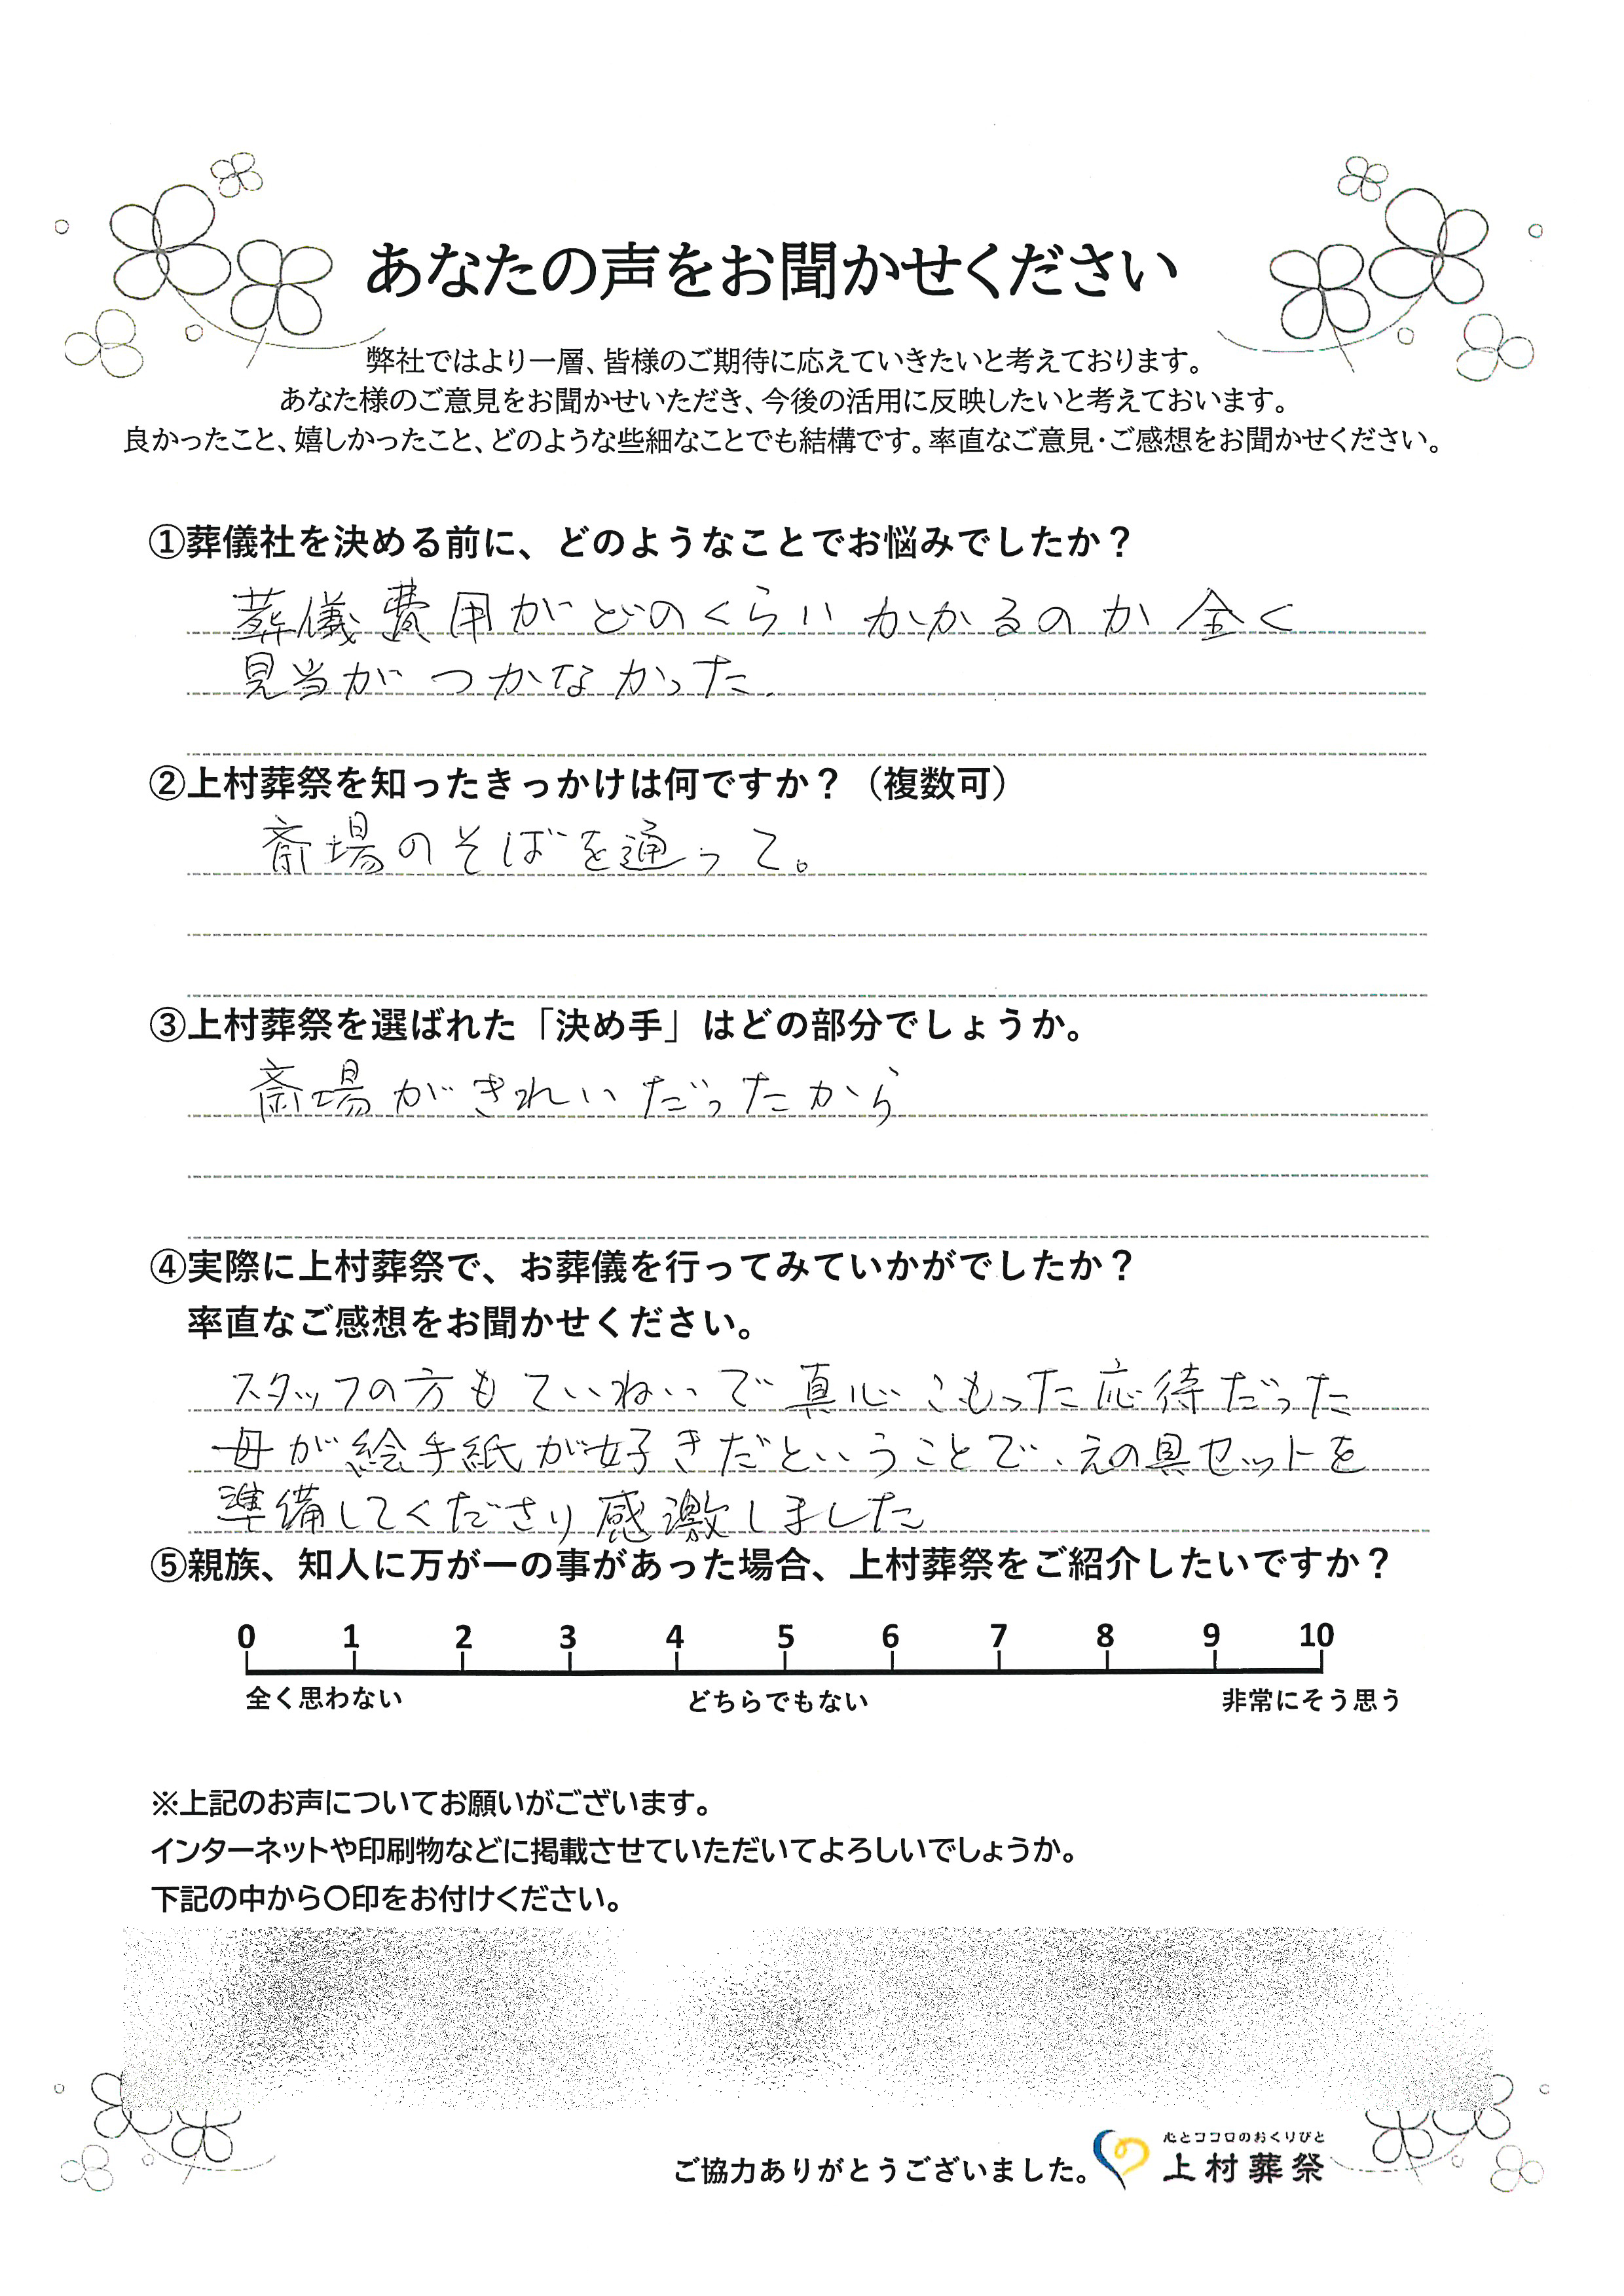 あなたの声をお聞かせください
弊社ではより一層、皆様のご期待に応えていきたいと考えております。
あなた様のご意見をお聞かせいただき、今後の活用に反映したいと考えておいます。
良かったこと、嬉しかったこと、どのような些細なことでも結構です。率直なご意見・ご感想をお聞かせください。
①葬儀社を決める前に、どのようなことでお悩みでしたか？
葬儀費用がどのくらいかかるのか全く
見当がつかなかった.
②上村葬祭を知ったきっかけは何ですか？（複数可）
斎場のそばを通って。
③上村葬祭を選ばれた「決め手」はどの部分でしょうか。
斎場がきれいだったから
④実際に上村葬祭で、お葬儀を行ってみていかがでしたか？
率直なご感想をお聞かせください。
スタッフの方もていねいで真心こもった応待だった
母が絵手紙が好きだということで、えの具セットを
準備してくださり感激しました
⑤親族、知人に万が一の事があった場合、上村葬祭をご紹介したいですか？
0 1 2 3 4 5 6 7 8 9 10
全く思わない どちらでもない 非常にそう思う
※上記のお声についてお願いがございます。
インターネットや印刷物などに掲載させていただいてよろしいでしょうか。
下記の中から〇印をお付けください。
心とココロのおくりびと
ご協力ありがとうございました。 上村葬祭